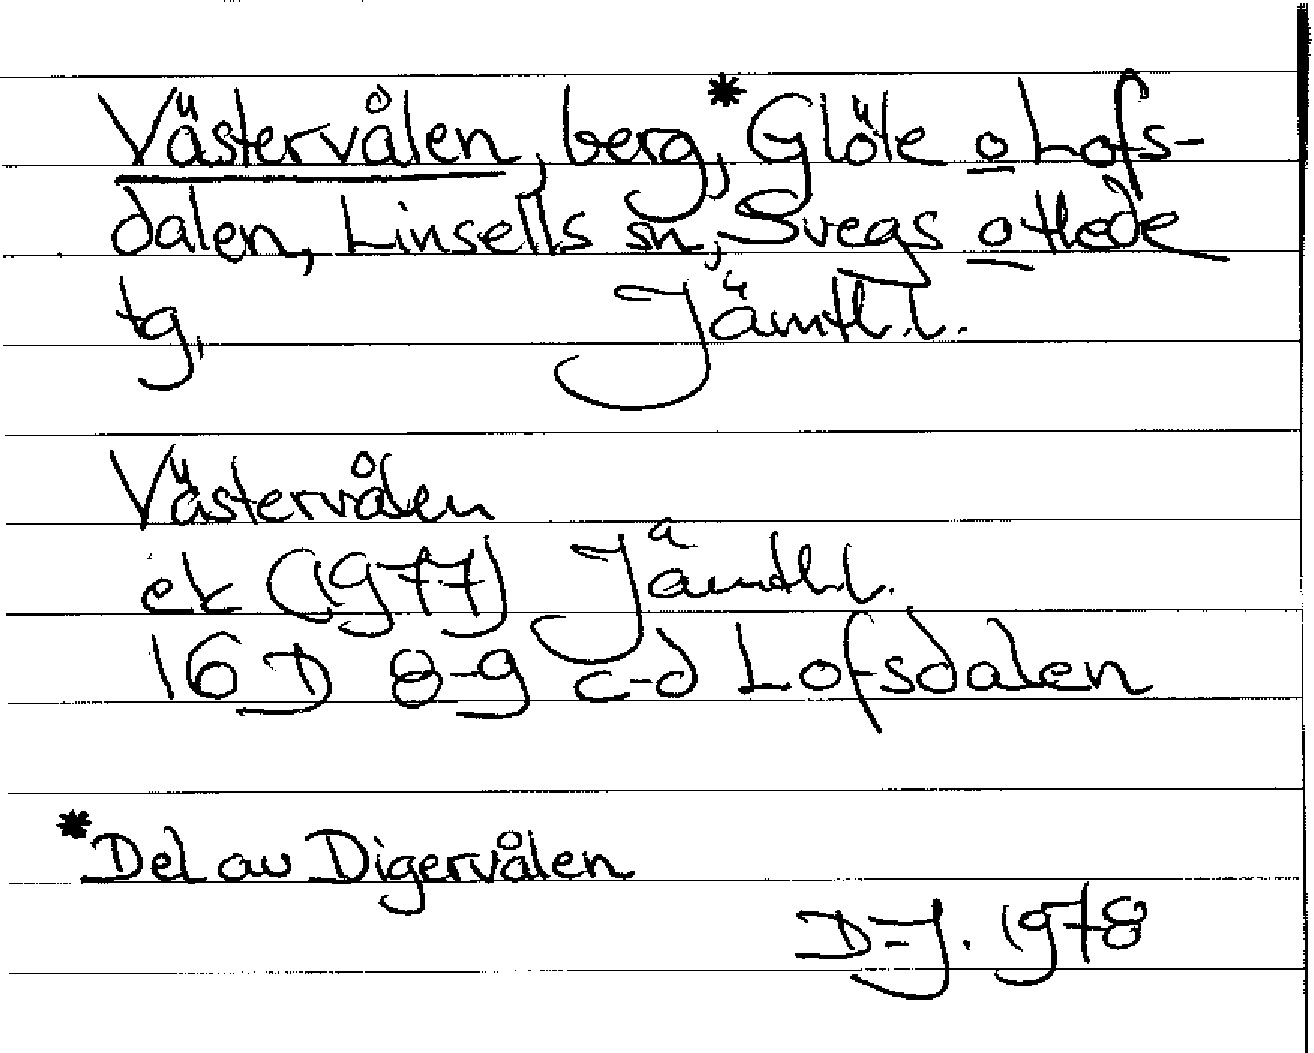 Västervålen, berg,* Glöte o Lofs-
dalen, Linsells sn, Svegs o Hede
tg. Jämtl.l.
Västervålen
ek (1977) Jämtl.l.
16D 8-9 c-d Lofsdalen
*Del av Digervålen
D-J. 1978